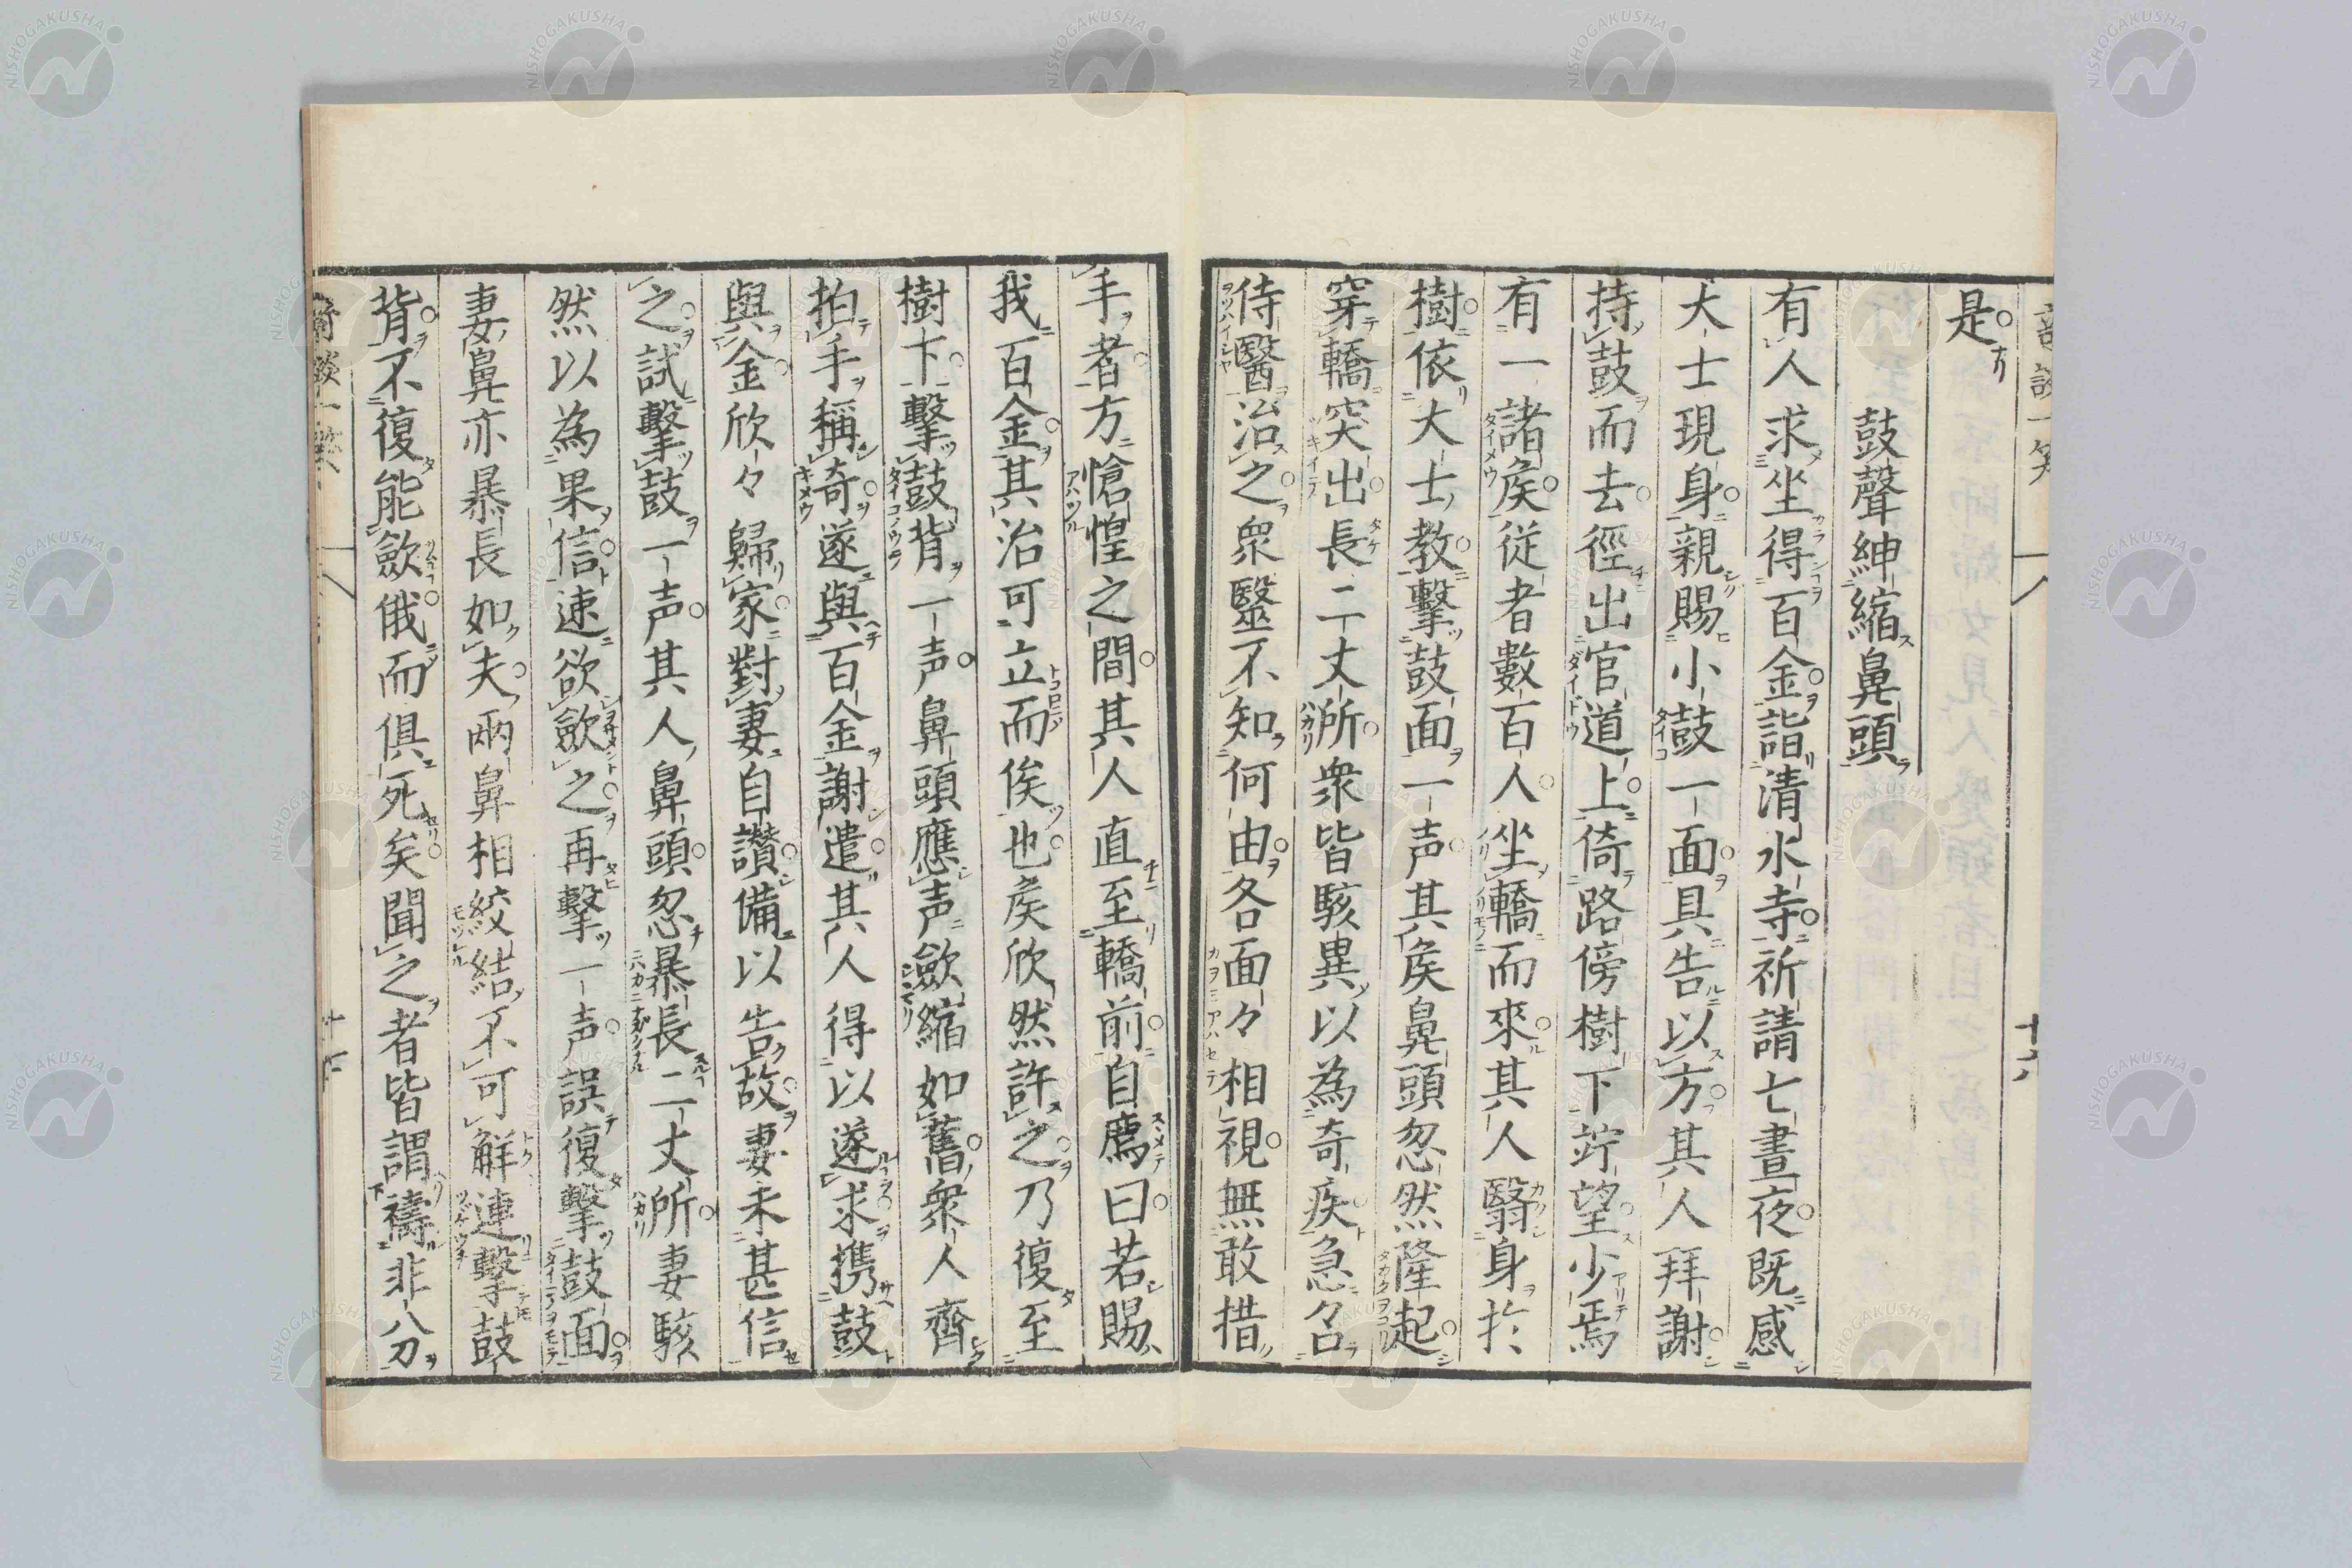 是
鼓聲紳縮鼻頭
有人求坐得百金詣清水寺祈請七晝夜既感
大士現身親賜小鼓一面具告以方其人拜謝
持鼓而去徑出官道上倚路傍樹下竚望少焉
有一諸矦従者數百人坐轎而來其人翳身於
樹依大士教擊鼓面一声其矦鼻頭忽然隆起
穿轎突出長二丈所衆皆駭異以為奇疾急召
侍醫治之衆醫不知何由各面々相視無敢措
手者方愴惶之間其人直至轎前自薦曰若賜
我百金其治可立而俟也矦欣然許之乃復至
樹下擊鼓背一声鼻頭應声歛縮如舊衆人齊
拍手稱奇遂與百金謝遣其人得以遂求携鼓
與金欣々歸家對妻自讃備以告故妻未甚信
之試擊鼓一声其人鼻頭忽暴長二丈所妻駭
然以為果信速欲歛之再擊一声誤復擊鼓面
妻鼻亦暴長如夫兩鼻相絞結不可解連擊鼓
背不復能歛俄而俱死矣聞之者皆謂禱非分